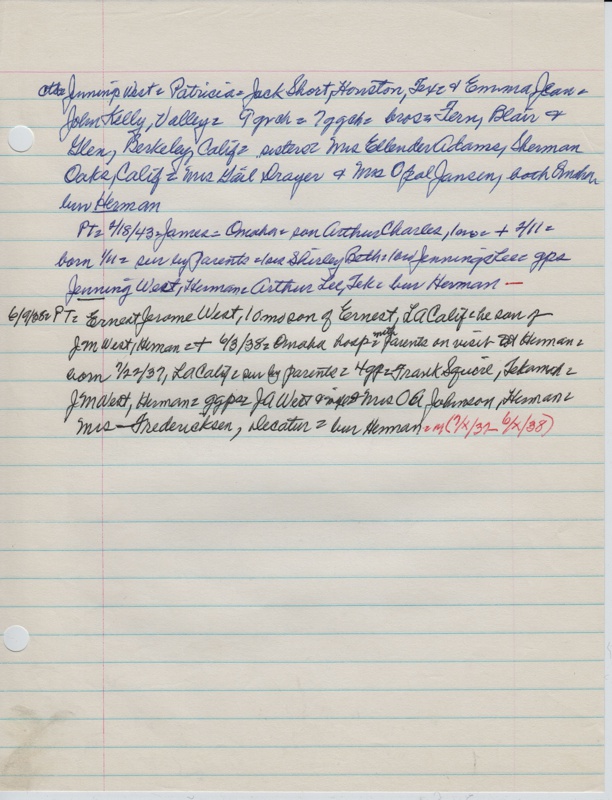 Jennings West = Patricia = Jack Short, Houston, Tex = & Emma Jean =
John Kelly, Valley = 9 grch = 7 ggch = bros = Fern, Blair &
Glen, Berkeley, Calif = sisters = Mrs Ellender Adams, Sherman
Oaks, Calif = Mrs Gail Drayer & Mrs Opal Jansen, both Omaha
bur Herman
PT = 2/18/43 = James = Omaha = son Arthur Charles, 1 mo = + 2/11 =
born 1/11 = sur by parents = 1 sis Shirley Beth = 1 bro Jennings Lee = gps
Jenning West, Herman = Arthur Lee, Tek = bur Herman —
6/9/38 = PT = Ernest Jerome West, 10 mo son of Ernest, LA Calif = he son of
J M West, Herman = + 6/3/38 = Omaha hosp = with parents on visit Herman =
born 7/22/37, LA Calif = sur by parents = 4 gp = Frank Squire, Tekamah =
J M West, Herman = ggps = J A West & Mrs O A Johnson, Herman =
Mrs Fredericksen, Decatur = bur Herman = m (7/x/37 - 6/x/38)